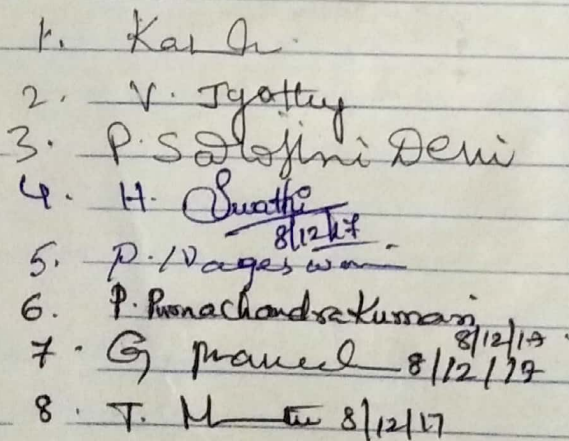 1. 
2. V. Jyothy
3. P. Sarojini Devi
4. H. Swathi
8/12/17
5. P. Nageswari
6. P. PurnachandraKumari
8/12/17
7. G 8/12/17
8. T. 8/12/17